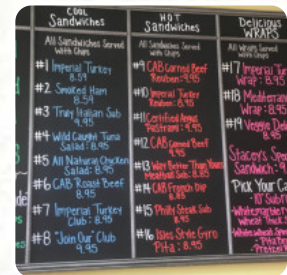 COOL
Sandwiches
All Sandwiches Served
with Chips
#1 Imperial Turkey
8.59
#2 Smoked Ham
8.59
#3 Truly Italian Sub
9.95
#4 Wild Caught Tuna
Salad: 8.95
#5 All Natural Chicken
Salad: 8.95
#6 CAB Roast Beef
8.95
#7 Imperial Turkey
Club: 8.95
#8 "Join Our" Club
9.95
HOT
Sandwiches
All Sandwiches Served
with Chips
#9 CAB Corned Beef
Reuben: 9.95
#10 Imperial Turkey
Reuben: 8.95
#11 Certified Angus
Pastrami: 9.95
#12 CAB Corned Beef
9.95
#13 Way Better Than Yours
Meatball Sub: 8.85
#14 CAB French Dip
8.85
#15 Philly Steak Sub
8.95
#16 Isles Style Gyro
Pita: 8.95
Delicious
WRAPS
All Wraps Served
with Chips
#17 Imperial
Wrap: 8.95
#18
Wrap: 8.95
#19 Veggie
8.95
Stacey's
Sandwich:
Pick Your
10" Sub